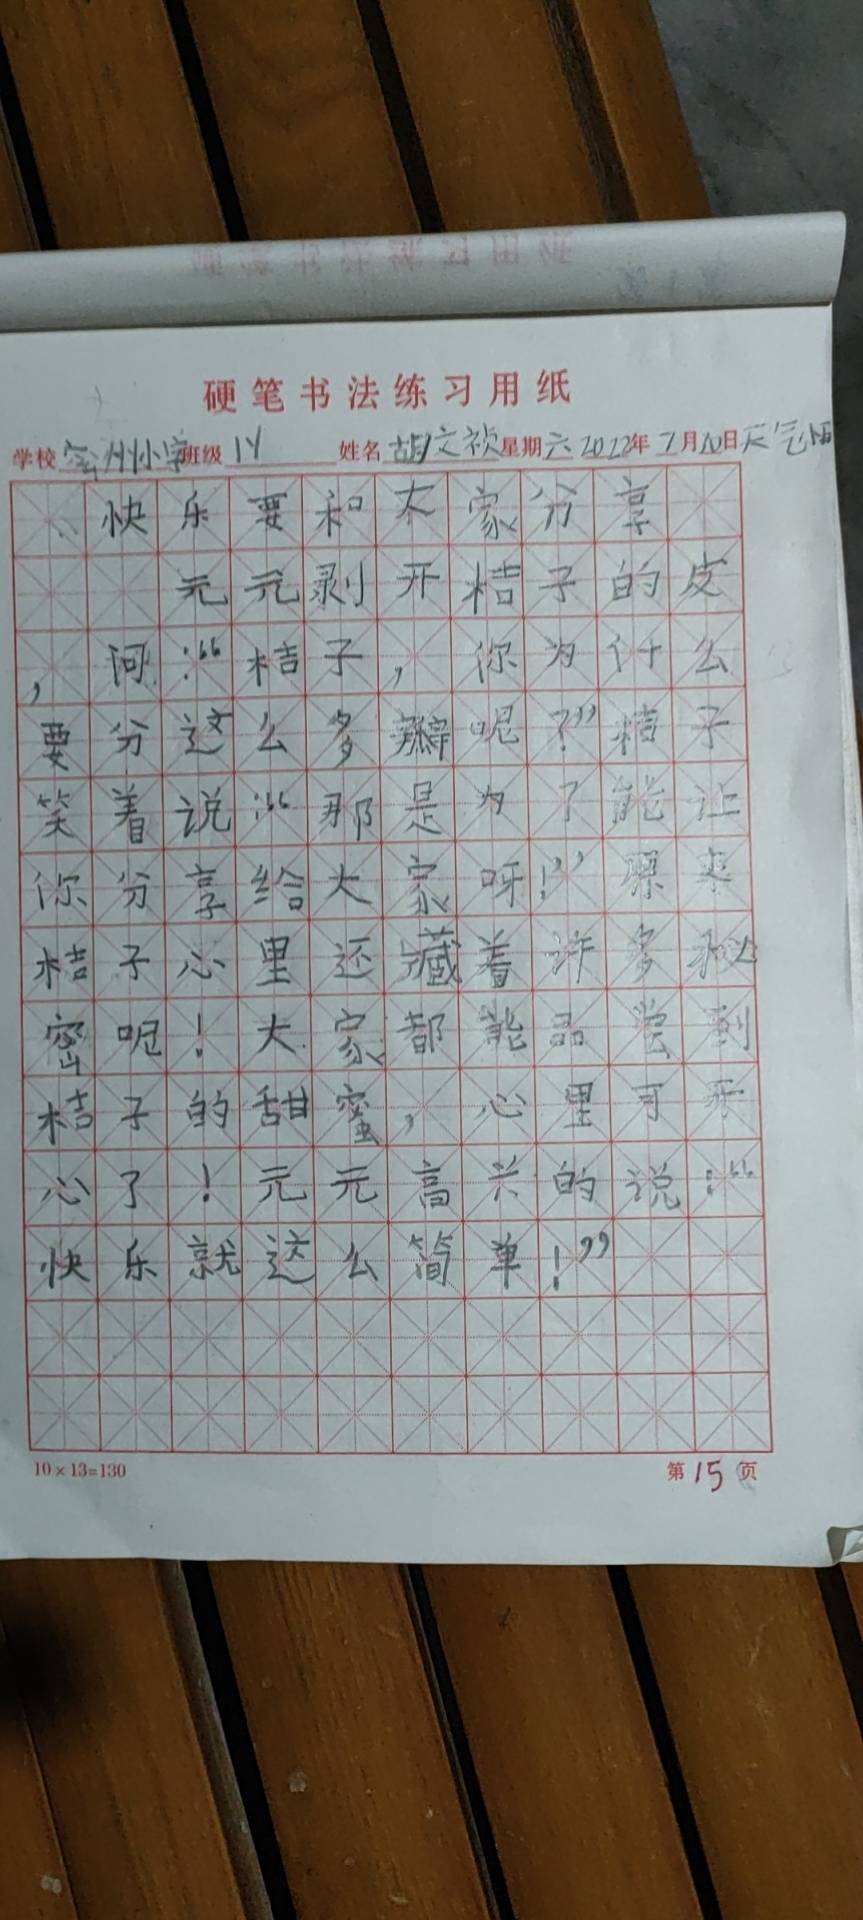 硬笔书法练习用纸
学校 密州小学 班级 14 姓名 胡文祯 星期六 2022年 7月10日 天气 晴
快乐要和大家分享
元元剥开桔子的皮
，问：“桔子，你为什么
要分这么多瓣呢？”桔子
笑着说：“那是为了能让
你分享给大家呀！”原来
桔子心里还藏着许多秘
密呢！大家都能品尝到
桔子的甜蜜，心里可开
心了！元元高兴的说：“
快乐就这么简单！”
10×13=130 第15页